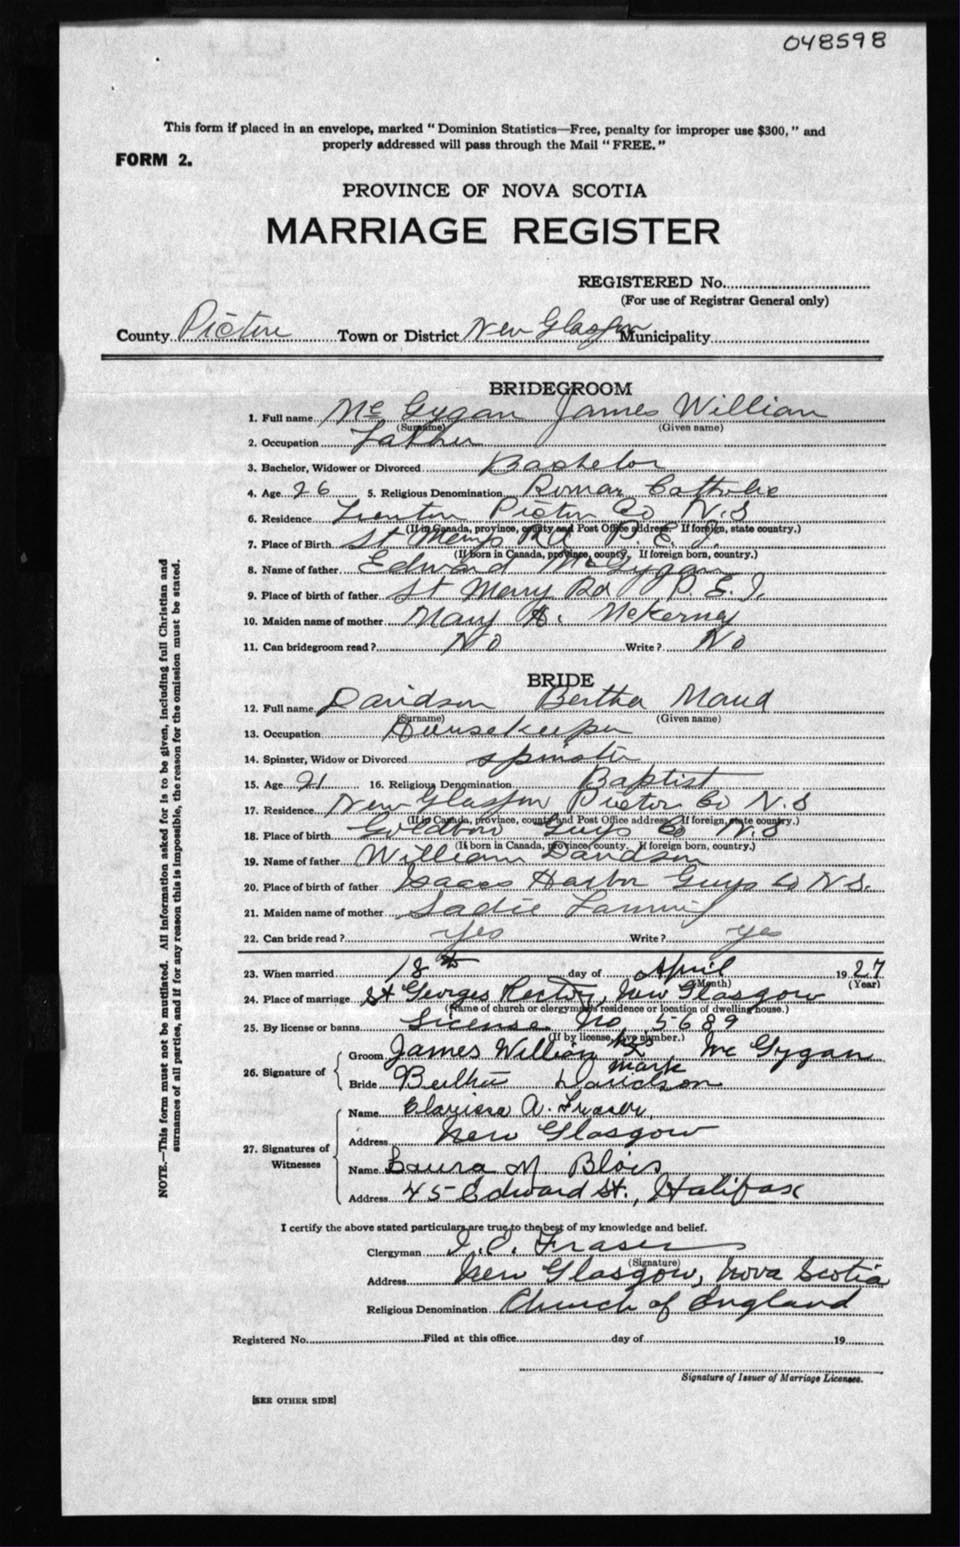 048598
This form if placed in an envelope, marked "Dominion Statistics—Free, penalty for improper use $300," and
properly addressed will pass through the Mail "FREE."
FORM 2.
PROVINCE OF NOVA SCOTIA
MARRIAGE REGISTER
REGISTERED No.
(For use of Registrar General only)
County Pictou Town or District New Glasgow Municipality
BRIDEGROOM
1. Full name McGygan James William
(Surname) (Given name)
2. Occupation
3. Bachelor, Widower or Divorced Bachelor
4. Age 26 5. Religious Denomination Roman Catholic
6. Residence Trenton Pictou Co N.S
(If in Canada, province, county and Post Office address. If foreign, state country.)
7. Place of Birth St Merys Rd P.E.I.
(If born in Canada, province, county. If foreign born, country.)
8. Name of father Edward McGygan
9. Place of birth of father St Mary Rd P.E.I.
10. Maiden name of mother Mary A. McKerney
11. Can bridegroom read? No Write? No
BRIDE
12. Full name Davidson Bertha Maud
(Surname) (Given name)
13. Occupation Housekeeper
14. Spinster, Widow or Divorced spinster
15. Age 21 16. Religious Denomination Baptist
17. Residence New Glasgow Pictou Co N.S
(If in Canada, province, county and Post Office address. If foreign, state country.)
18. Place of birth Goldboro Guys Co N.S
(If born in Canada, province, county. If foreign born, country.)
19. Name of father William Davidson
20. Place of birth of father Isaacs Harbor Guys Co N.S.
21. Maiden name of mother Sadie
22. Can bride read? yes Write? yes
23. When married 18th day of April 1927
(Month) (Year)
24. Place of marriage St Georges Rectory, New Glasgow
(Name of church or clergyman's residence or location of dwelling house.)
25. By license or banns License No 5689
(If by license, give number.)
26. Signature of
Groom James William his X mark McGygan
Bride Bertha Davidson
27. Signatures of Witnesses
Name Clarissa A. Fraser,
Address New Glasgow
Name Laura M Blois
Address 45 Edward St., Halifax
I certify the above stated particulars are true to the best of my knowledge and belief.
Clergyman I.C. Fraser
(Signature)
Address New Glasgow, Nova Scotia
Religious Denomination Church of England
Registered No. Filed at this office day of 19
Signature of Issuer of Marriage Licenses.
[SEE OTHER SIDE]
NOTE.—This form must not be mutilated. All information asked for is to be given, including full Christian and
surnames of all parties, and if for any reason this is impossible, the reason for the omission must be stated.